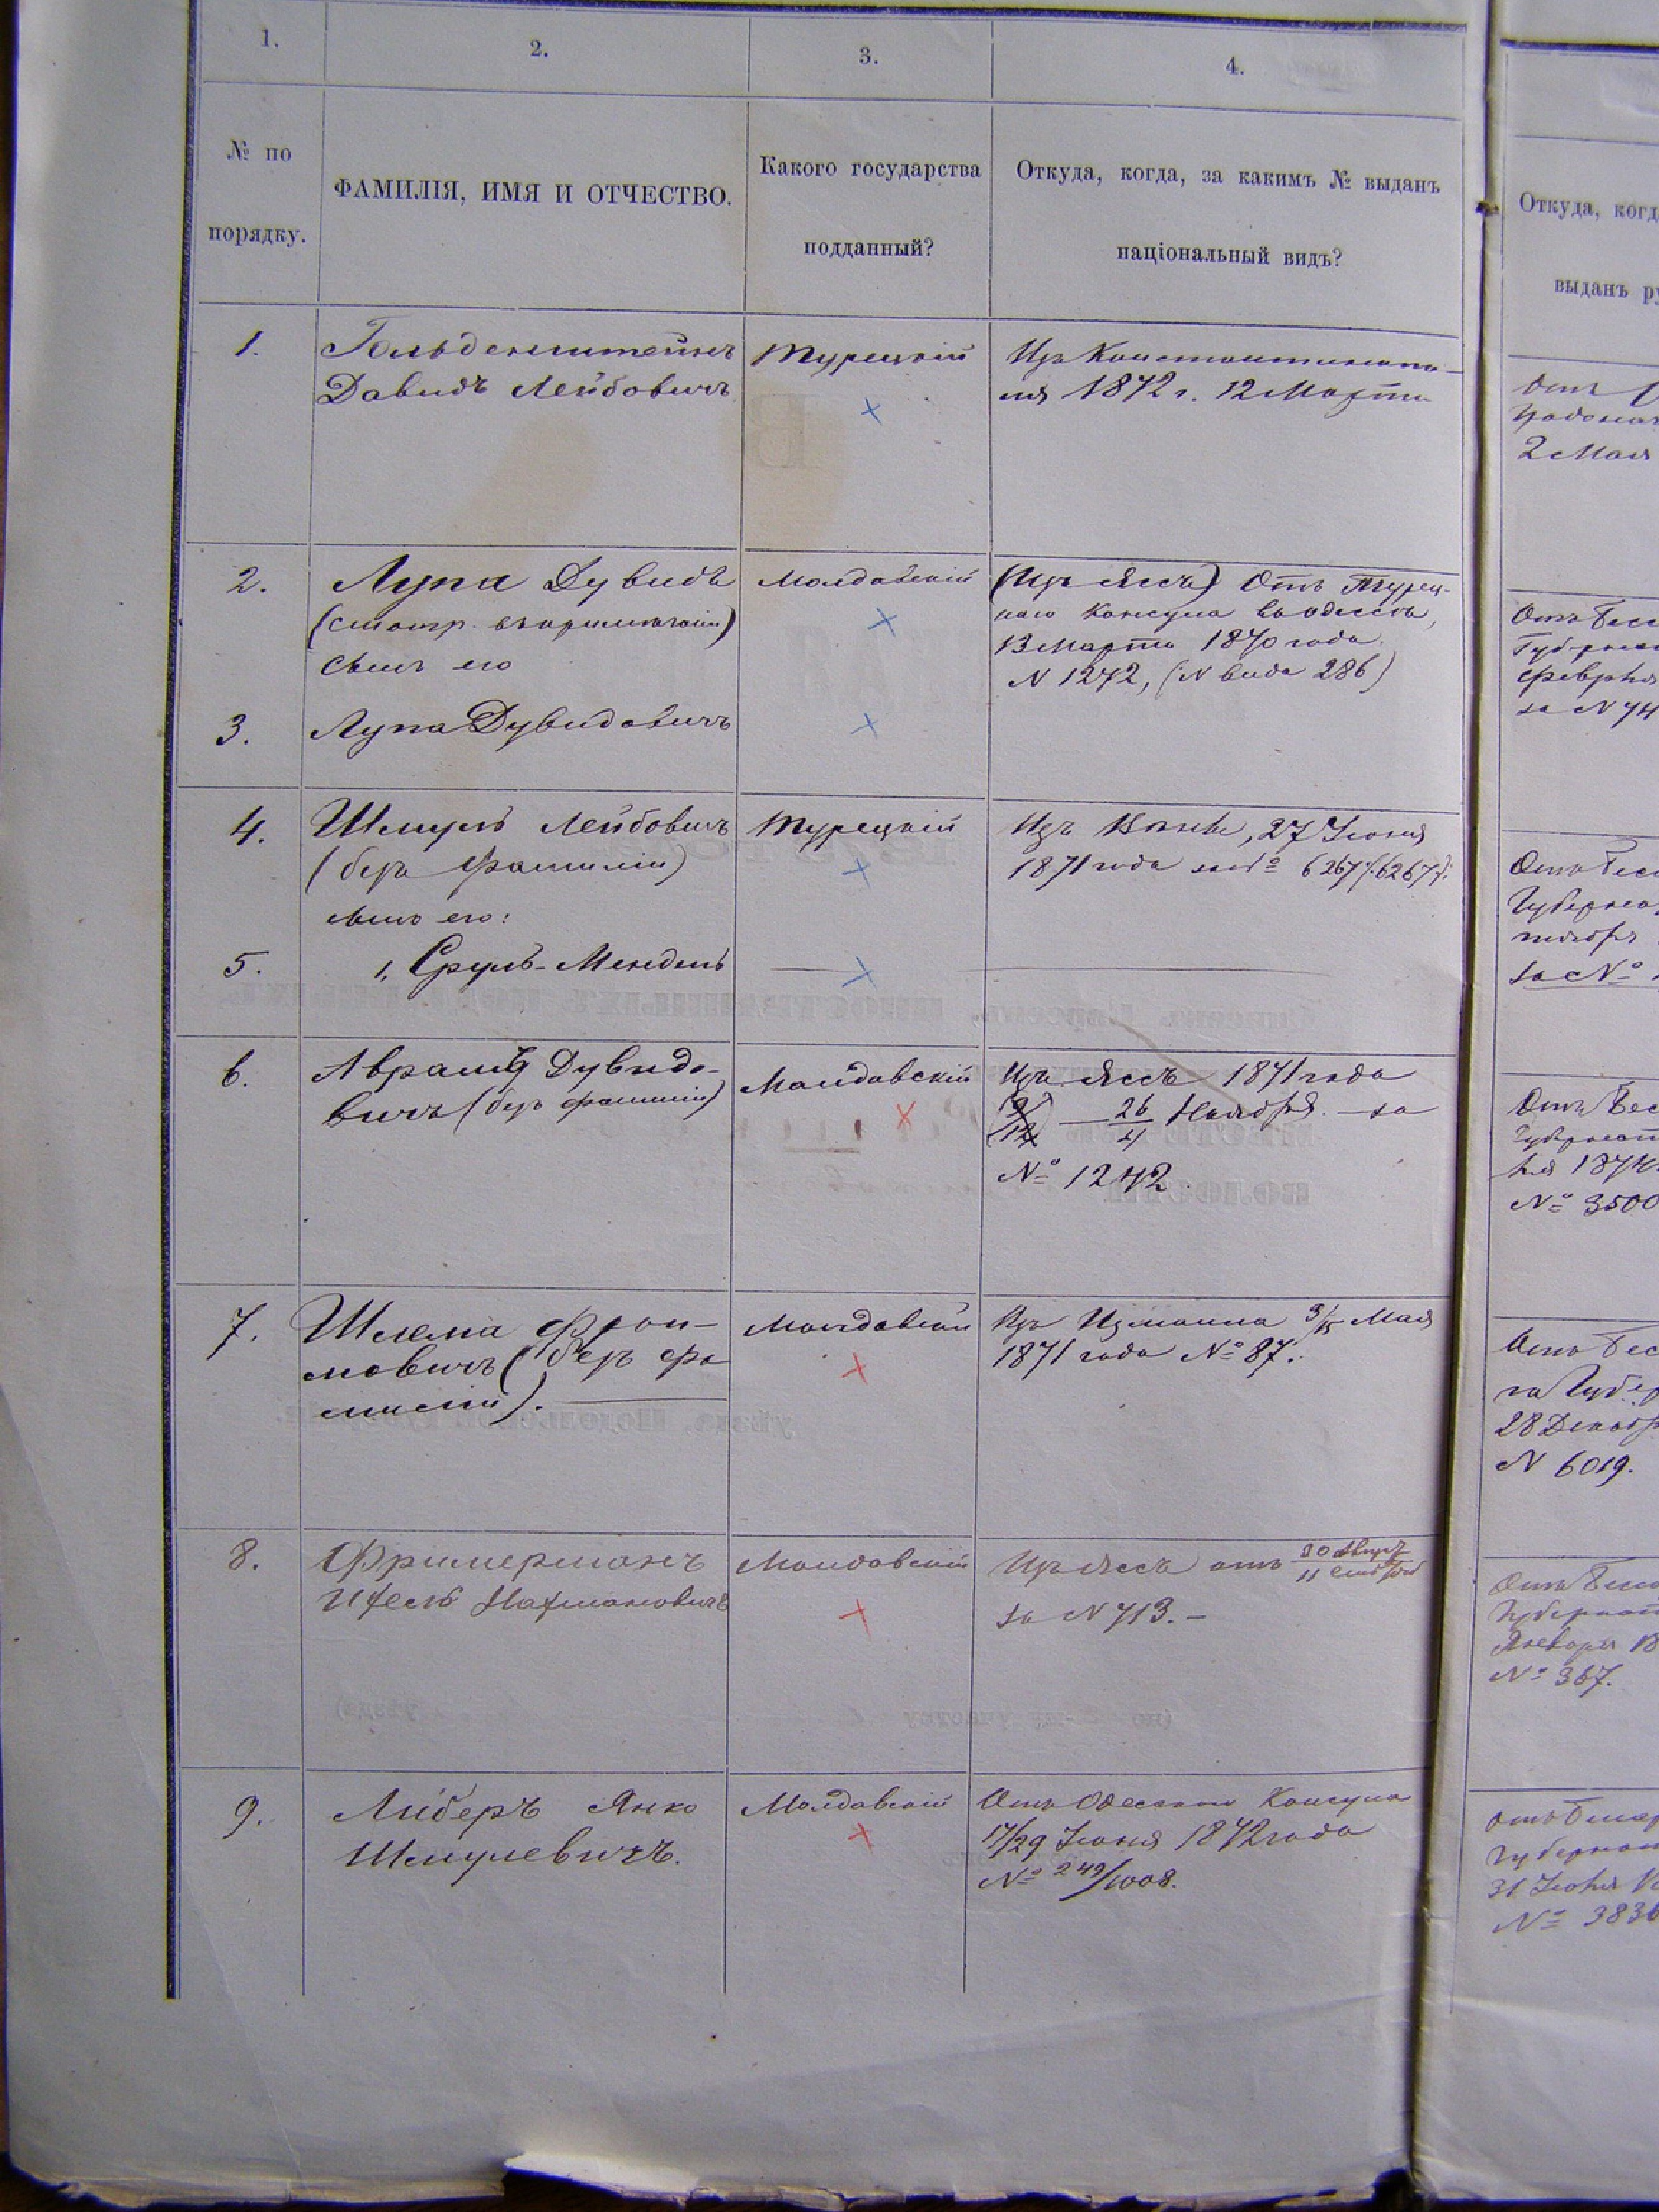 1.
2.
3.
4.
№ по
порядку.
ФАМИЛІЯ, ИМЯ И ОТЧЕСТВО.
Какого государства
подданный?
Откуда, когда, за какимъ № выданъ
національный видъ?
Откуда, когд
выданъ ру
1.
Гольденштейнъ
Давидъ Лейбовичъ
Турецкій
Изъ Константинопо-
ля 1872 г. 12 Марта
2 Мая
2.
Лупа Дувидъ
(смотр. въ примѣчаніи)
сынъ его
Молдавскій
(Изъ Яссъ) Отъ Турец-
каго Консула въ Одессѣ,
13 Марта 1870 года
N 1242, (N вида 286)
Отъ Бесс
Февраля
за N 74
3.
Лупа Дувидовичъ
4.
Шмуль Лейбовичъ
(безъ фамиліи)
сынъ его:
Турецкій
Изъ 27 Іюня
1871 года за № 6267 /:6267:/
Отъ Бесс
за №
5.
1, Сруль-Мендель
6.
Аврамъ Дувидо-
вичъ (безъ фамиліи)
Молдавскій
Изъ Яссъ 1871 года
26 Ноября за
№ 1242.
Отъ Бес
1874
№ 3500
7.
Шлема Фрои-
мовичъ (безъ фа-
миліи).
Молдавскій
Изъ Измаила 3/15 Мая
1871 года № 87.
Отъ Бес
28 Декабр
N 6019.
8.
Фримерманъ
Ицель Нахмановичъ
Молдавскій
Изъ Яссъ отъ 30 Авгус / 11 Сентября
за N 713. –
Отъ Бесс
Января 18
№ 367.
9.
Либеръ Янко
Шмулевичъ.
Молдавскій
Отъ Одесскаго Консула
17/29 Іюня 1872 года
№ 249/1008.
31 Іюля
№ 383